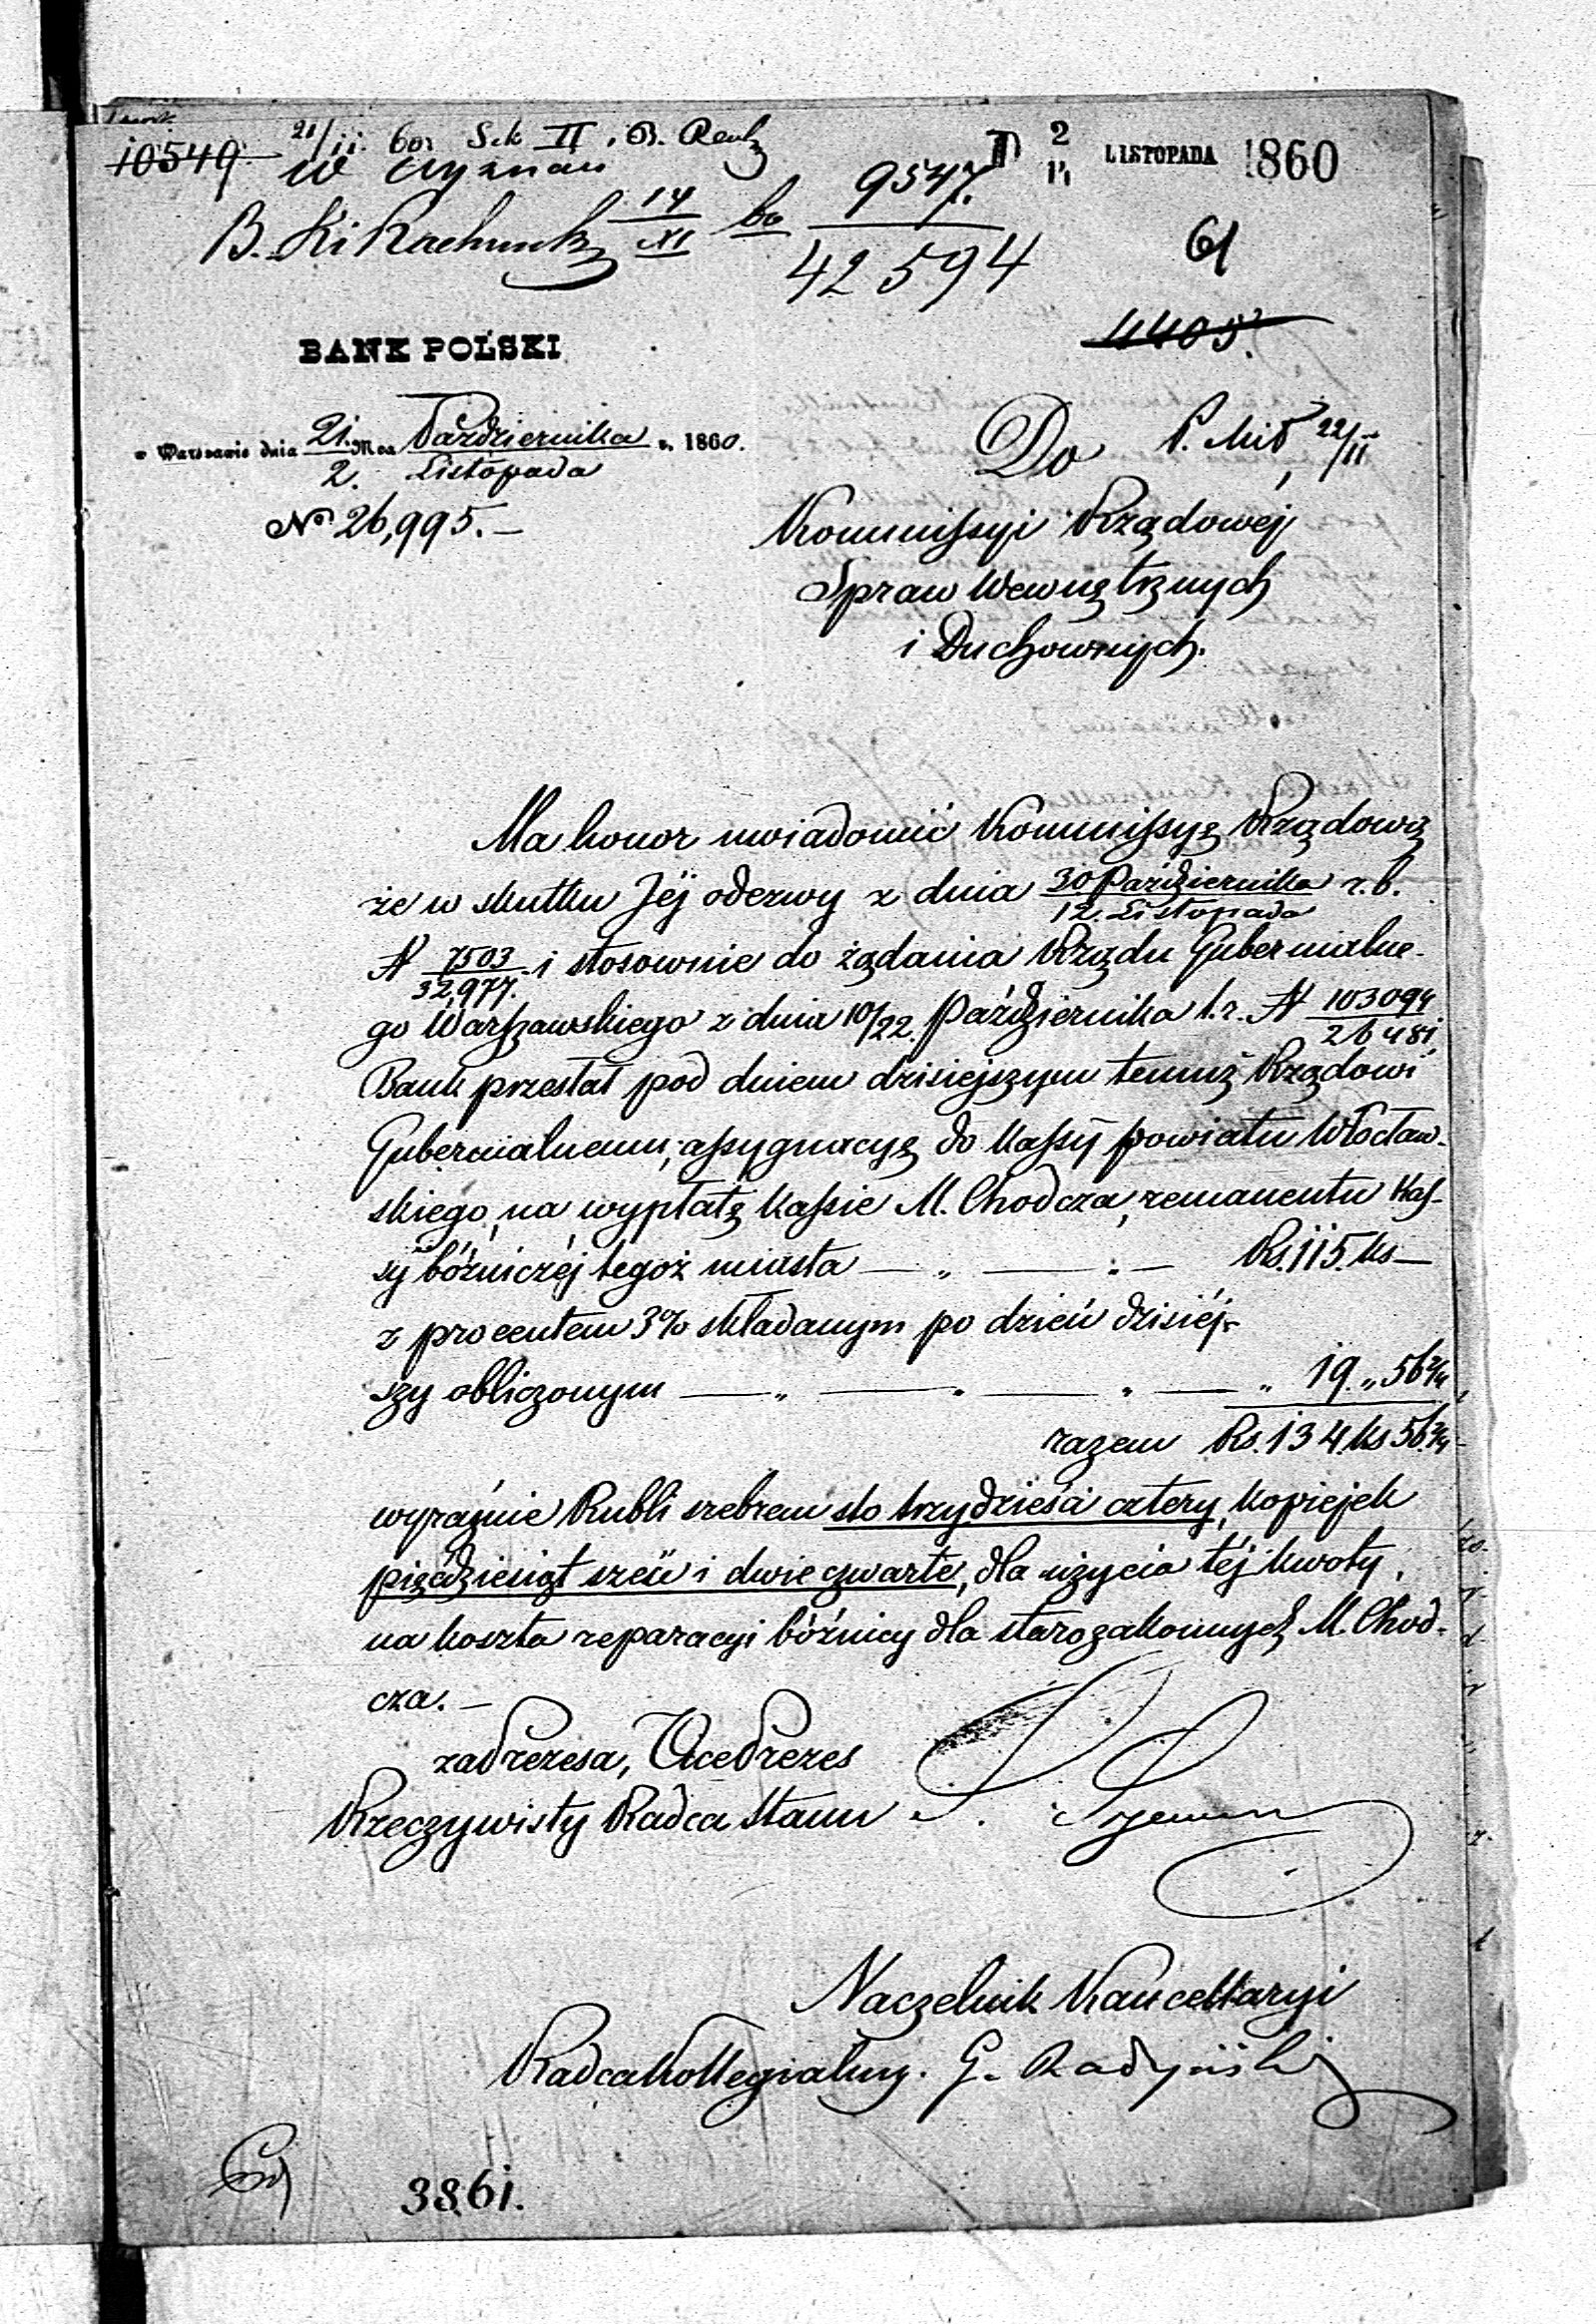 10549. 21/ii 60. Sek II. B.
W
B. Ki 14/XI 60 9547./42594
2/14 LISTOPADA 1860
61
4405.
BANK POLSKI
w Warszawie dnia 21./2. Mca Października/Listopada r. 1860.
No 26,995.—
Do
22/11
Kommissyi Rządowéj
Spraw Wewnętrznych
i Duchownych.
Ma honor uwiadomić Kommissyę Rządową
że w skutku Jéj odezwy z dnia 30 Października/12. Listopada r.b.
N 7503/32,977. i stosownie do żądania Rządu Gubernialne-
go Warszawskiego z dnia 10/22. Października b.r. N 103094/26481
Bank przesłał pod dniem dzisiejszym temuż Rządowi
Gubernialnemu, assygnacyę do Kassy powiatu Włocław-
skiego, na wypłatę kassie M. Chodcza, remanentu Kas-
sy bóżniczéj tegoż miasta — „ — „ — Rs. 115. ks —
z procentem 3% składanym po dzień dzisiéj-
szy obliczonym — „ — „ — „ — „ 19 „ 56 2/4
razem Rs. 134. ks 56. 2/4
wyraźnie Rubli srebrem sto trzydzieści cztery, kopiejek
pięćdziesiąt sześć i dwie czwarte, dla użycia téj kwoty,
na koszta reparacyi bóżnicy dla starozakonnych M. Chod-
cza. —
za Prezesa, Vice Prezes
Rzeczywisty Radca Stanu
Naczelnik Kancellaryi
Radca Kollegialny. G. Radyński
3861.